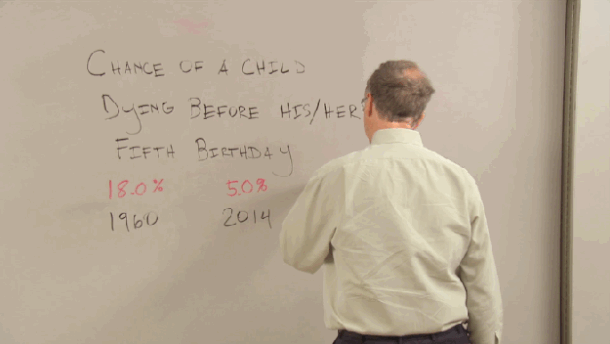 CHANCE OF A CHILD
DYING BEFORE HIS/HER
FIFTH BIRTHDAY
18.0% 5.0%
1960 2014